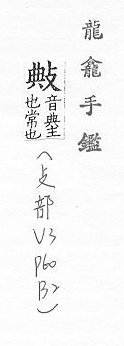 龍龕手鑑
敟音典主也常也
(攴部 V3 P60 B2)